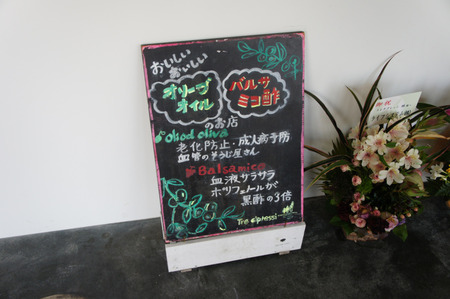 おいしい
おいしい
オリーブ
オイル
バルサ
ミコ酢
のお店
okod oliva
老化防止・成人病予防
血管のそうじ屋さん
Balsamico
血液サラサラ
ポリフェノールが
黒酢の3倍
Tre cipressi
御祝